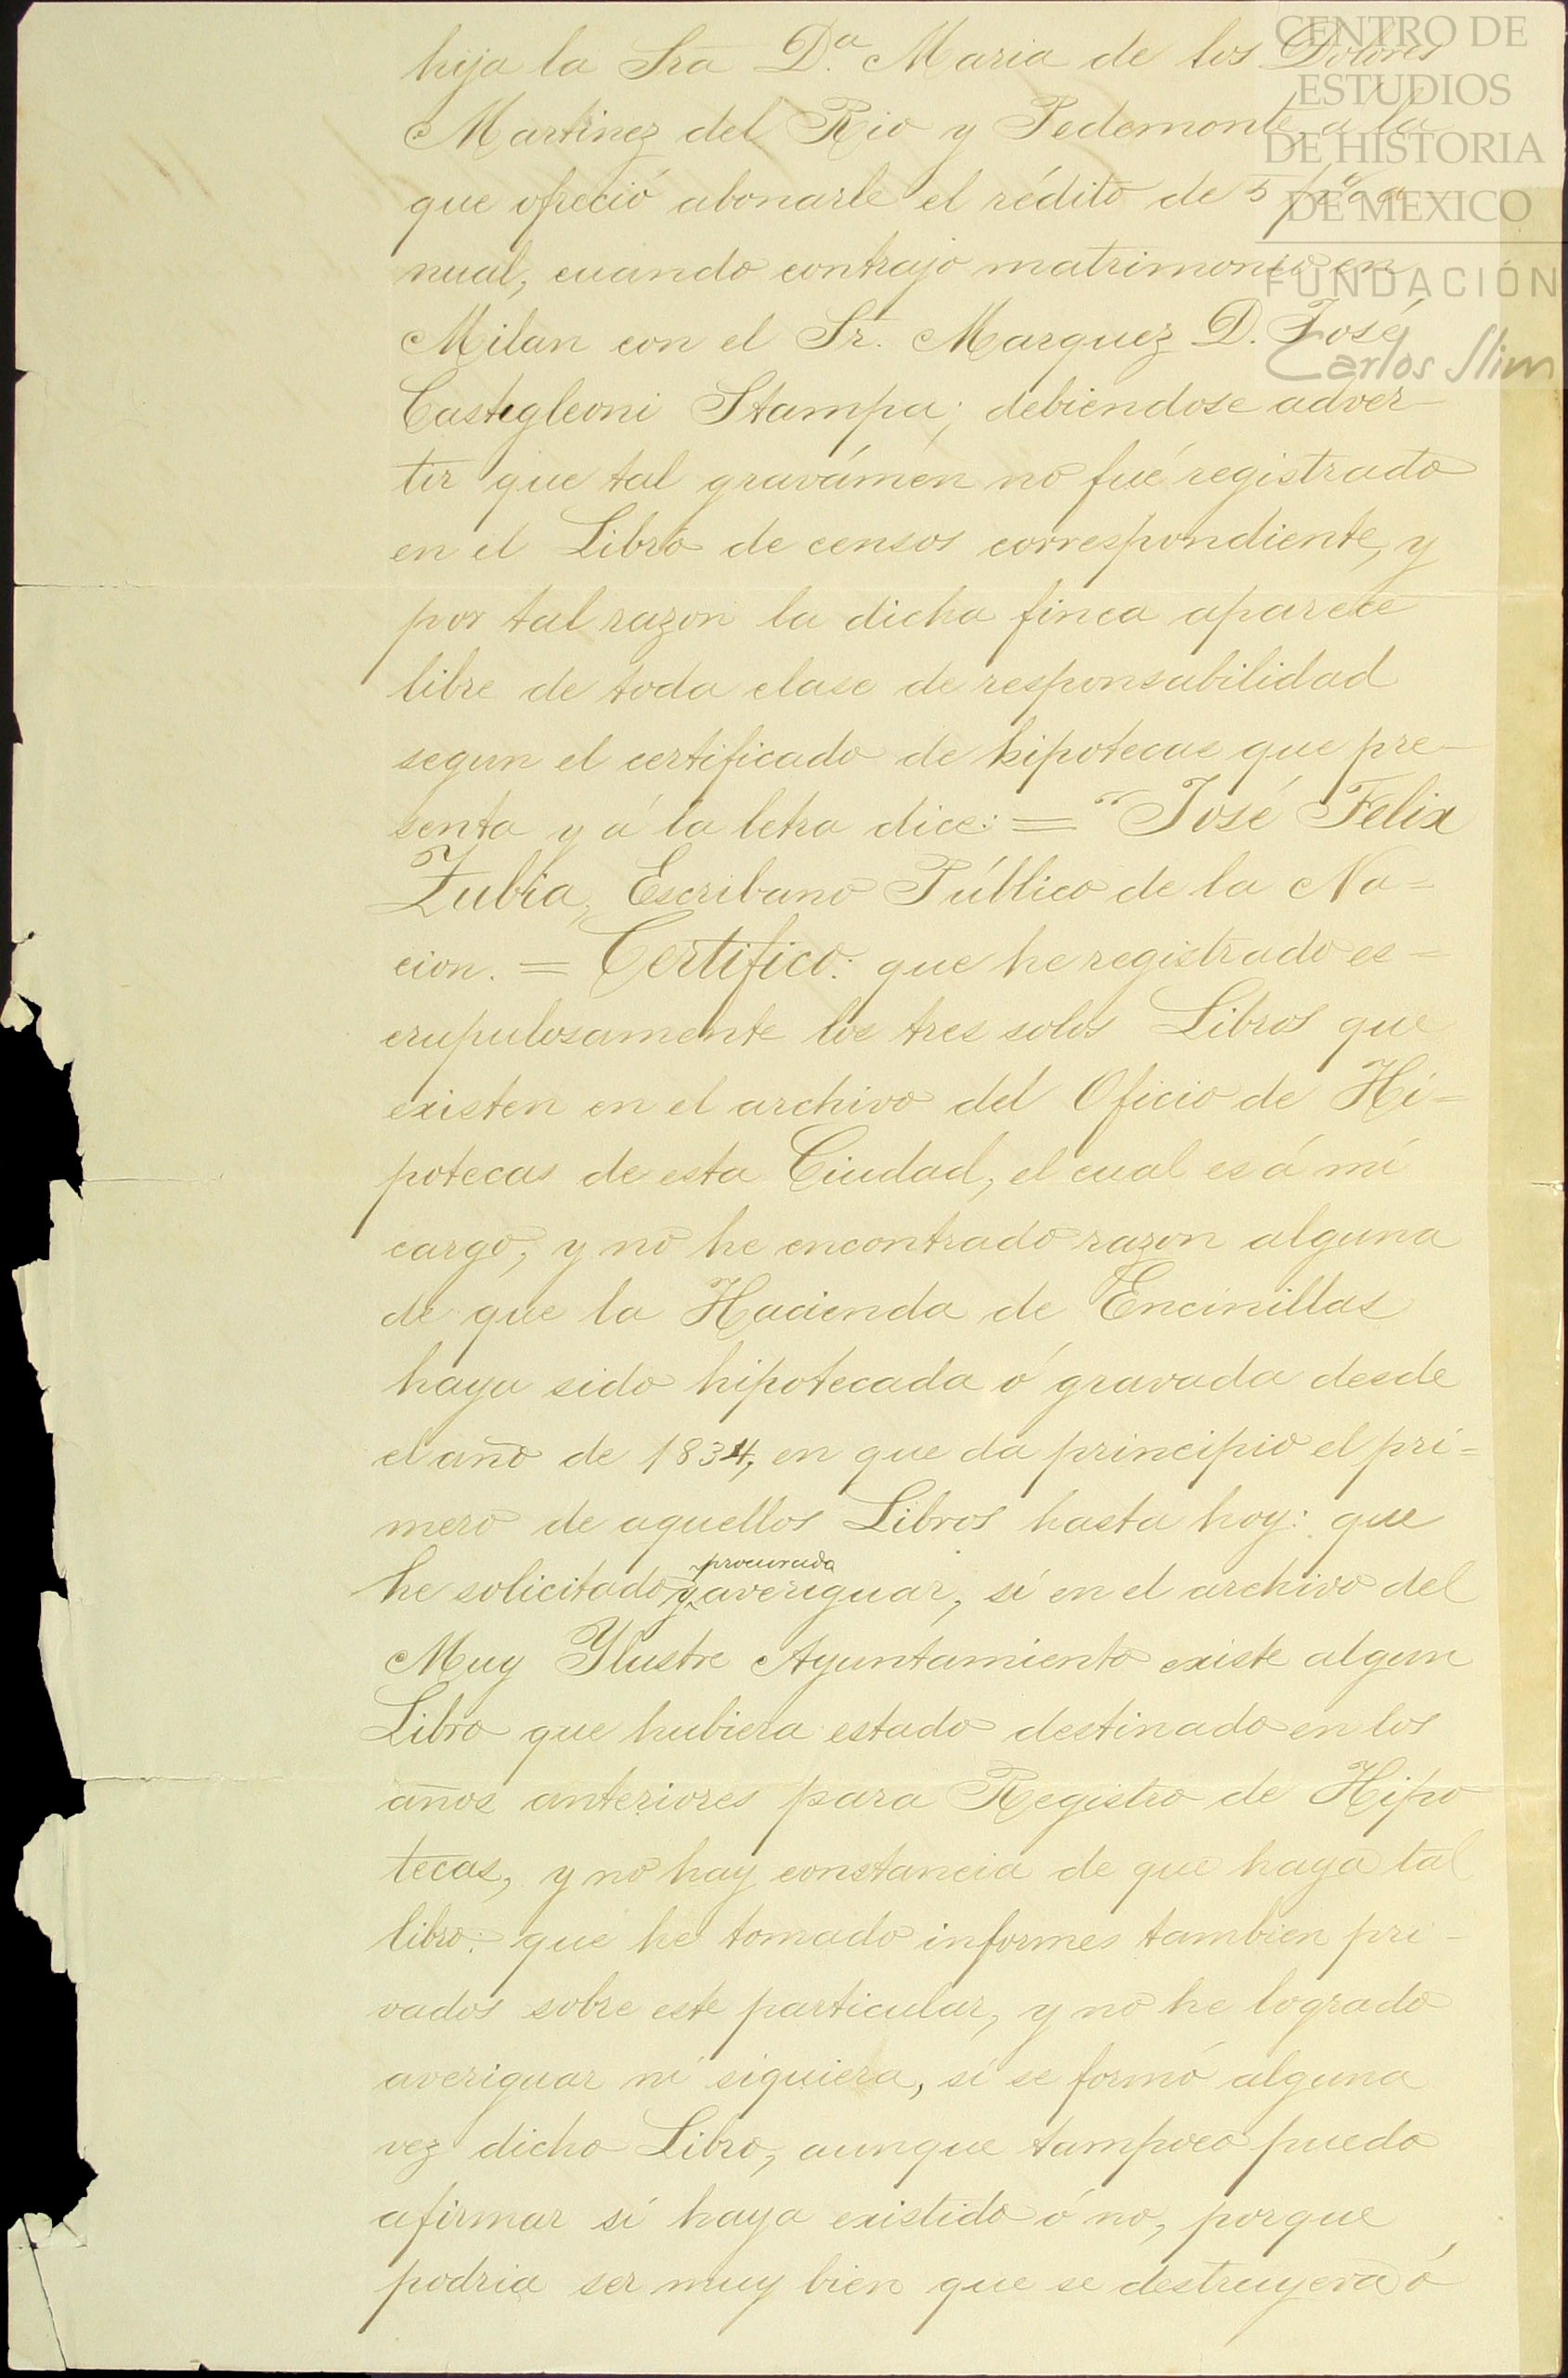 CENTRO DE
ESTUDIOS
DE HISTORIA
DE MEXICO
FUNDACIÓN
Carlos Slim
hija la Sra D.ª Maria de los Dolores
Martinez del Rio y Pedemonte, a la
que ofreció abonarle el rédito de 5 p% a
nual, cuando contrajo matrimonio en
Milan con el Sr. Marquez D. José
Castigleoni Stampa; debiendose adver-
tir que tal gravámen no fué registrado
en el Libro de censos correspondiente, y
por tal razon la dicha finca aparece
libre de toda clase de responsabilidad
segun el certificado de hipotecas que pre-
senta y á la letra dice: = "José Felix
Zubia, Escribano Público de la Na=
cion. = Certifico: que he registrado es=
crupulosamente los tres solos Libros que
existen en el archivo del Oficio de Hi=
potecas de esta Ciudad, el cual es á mi
cargo, y no he encontrado razon alguna
de que la Hacienda de Encinillas
haya sido hipotecada ó gravada desde
el año de 1834, en que da principio el pri=
mero de aquellos Libros hasta hoy: que
procurado
he solicitado y averiguar, si en el archivo del
Muy Ylustre Ayuntamiento existe algun
Libro que hubiera estado destinado en los
años anteriores para Registro de Hipo
tecas, y no hay constancia de que haya tal
libro: que he tomado informes tambien pri-
vados sobre este particular, y no he logrado
averiguar ni siquiera, si se formó alguna
vez dicho Libro, aunque tampoco puedo
afirmar si haya existido ó no, porque
podria ser muy bien que se destruyera ó